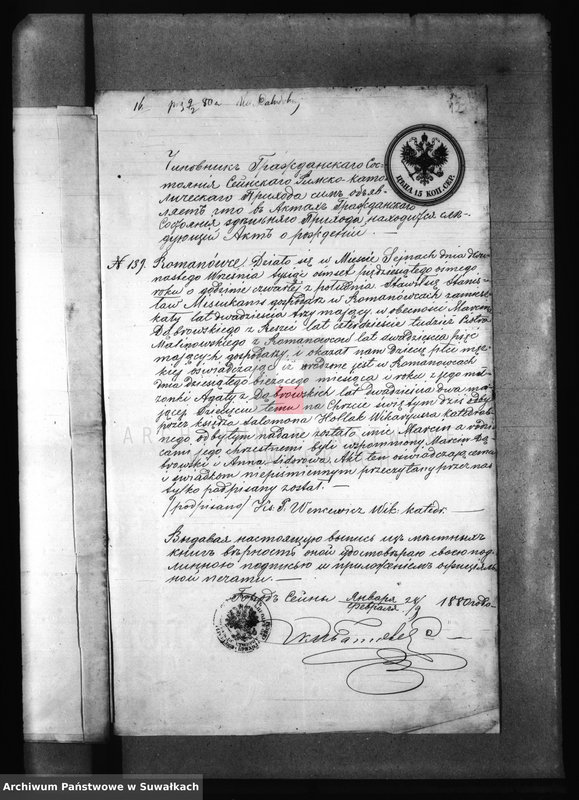 16
Чиновникъ Гражданскаго Сос-
тоянія Сейнскаго Римско-като-
лическаго Прихода симъ объяв-
ляетъ что въ Актахъ Гражданскаго
Состоянія здешняго Прихода находится слѣ-
дующій Актъ о рожденіи. —
ЦѢНА 15 КОП. СЕР.
N 139. Romanówce Działo się w Mieście Sejnach dnia dwu-
nastego Września tysiąc ośmset pięćdziesiątego ósmego
roku o godzinie czwartej z południa Stawił się Stanis-
ław Misiukanis gospodarz w Romanówcach zamiesz-
kały lat dwadzieścia trzy mający, w obecności Marcina
Dąbrowskiego z lat czterdzieście tudzież Piotra
Malinowskiego z Romanowców lat dwadzieścia pięć
mających gospodarzy i okazał nam Dziecię płci męz-
kiej oświadczając iż urodzone jest w Romanówcach
dnia dziesiątego bieżącego miesiąca i roku z jego mał-
żonki Agaty z Dąbrowskich lat dwadzieścia dwa ma-
jącej. Dziecięciu temu na Chrzcie świętym dziś odby-
przez księdza Salomona Hollak Wikaryusza katedral-
nego, odbytym nadane zostało imie Marcin a rodzi-
cami jego chrzestnemi byli wspomniony Marcin Dą-
browski i Anna Sidorowa. Akt ten oświadczającemu
i świadkom niepiśmiennym przeczytany przez nas
tylko podpisany został. —
/podpisano/ Xs. P. Wencewicz Wik. katedr. —
Выдавая настоящую выпись изъ мѣстныхъ
книгъ вѣрность оной удостовѣряю своею под-
линною подписью и приложеніемъ оффиціаль-
ной печати. —
Городъ Сейны Января / Февраля 28/9 1880 года
Archiwum Państwowe w Suwałkach